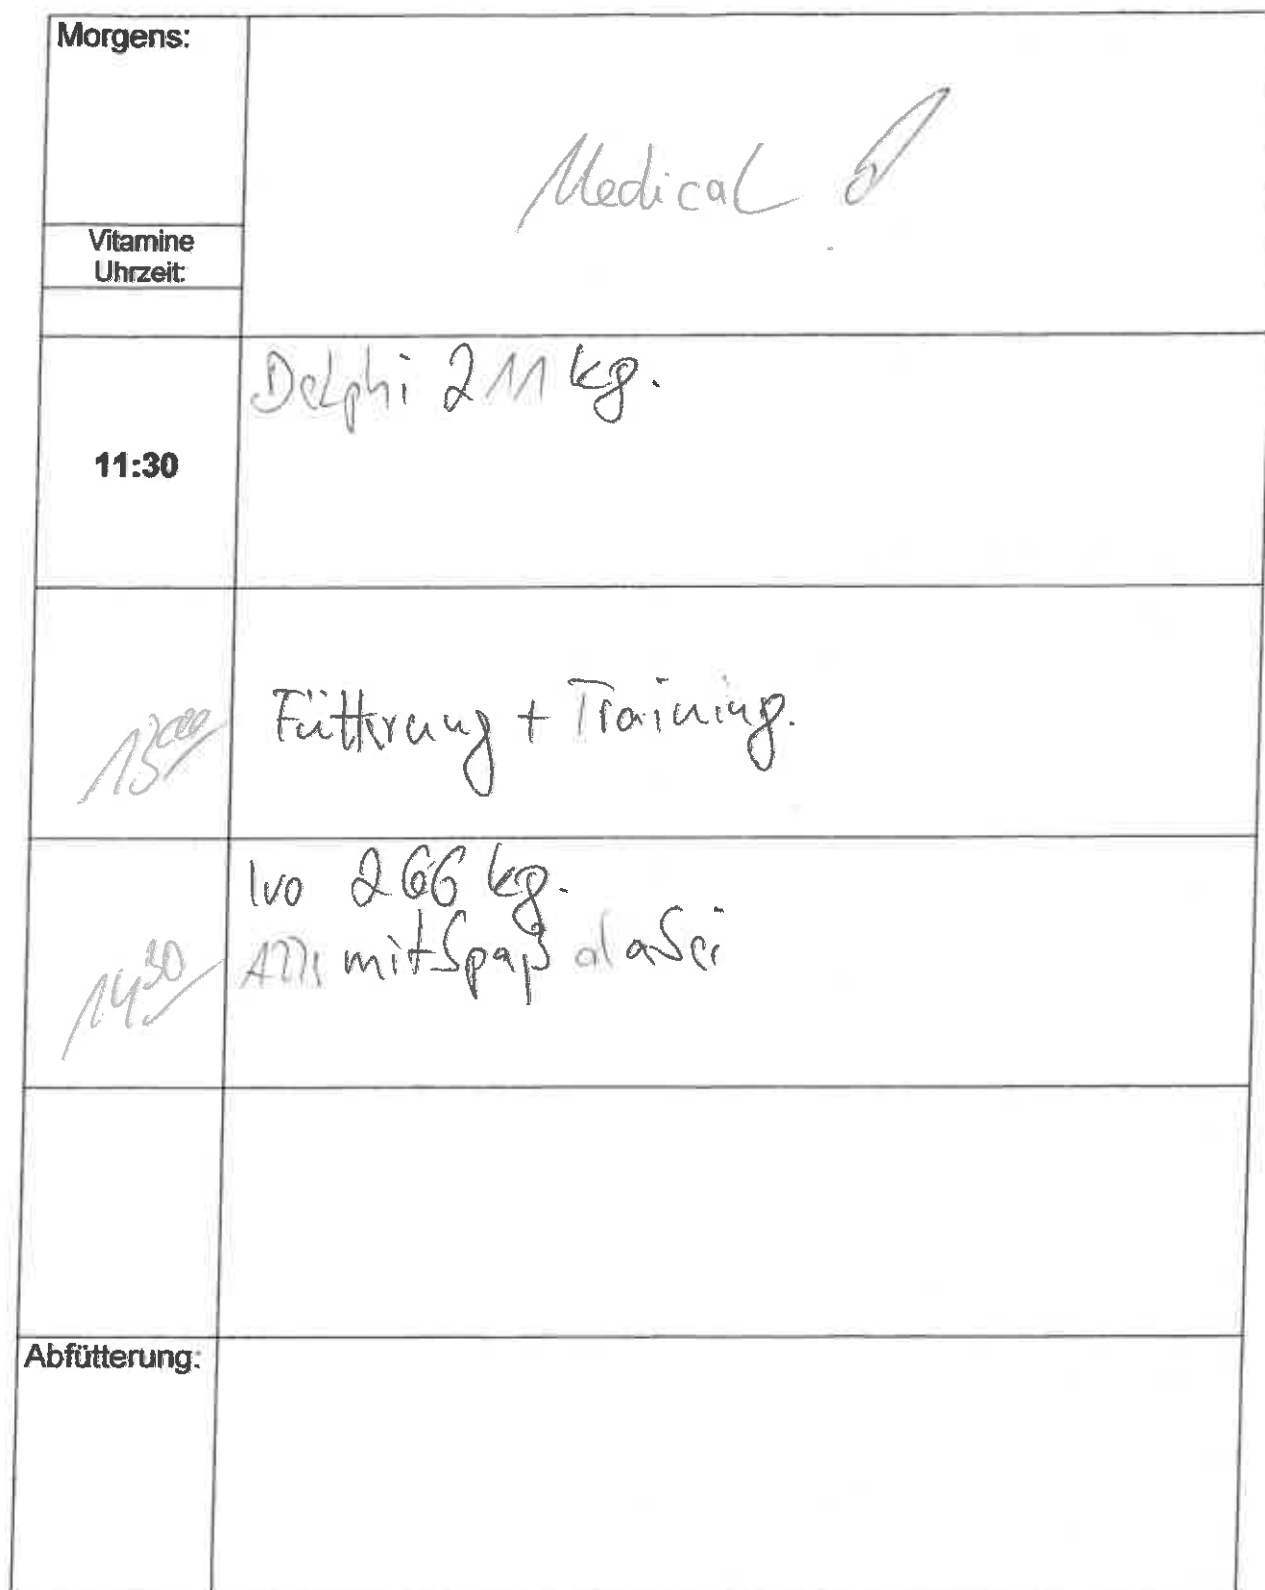 Morgens:
Medical
Vitamine
Uhrzeit:
Delphi 211 kg.
11:30
Fütterung + Training.
13 00
Ivo 266 kg.
Alle mit Spaß dabei
14 30
Abfütterung: